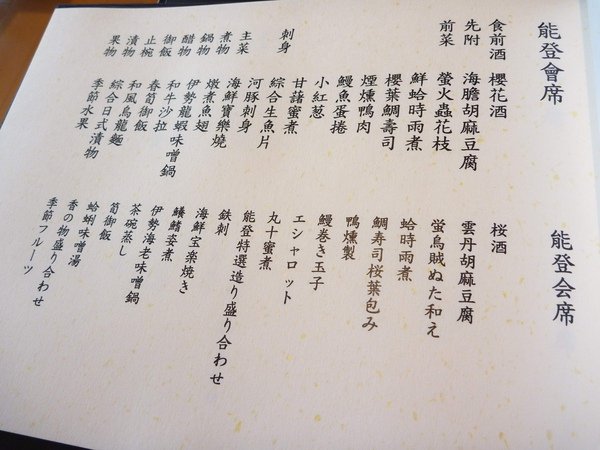 能登會席
食前酒 櫻花酒
先附 海膽胡麻豆腐
前菜 螢火蟲花枝
鮮蛤時雨煮
櫻葉鯛壽司
煙燻鴨肉
鰻魚蛋捲
小紅蔥
甘藷蜜煮
刺身 綜合生魚片
河豚刺身
主菜 海鮮寶樂燒
煮物 燉煮魚翅
鍋物 伊勢龍蝦味噌鍋
醋物 和牛沙拉
御飯 春筍御飯
止椀 和風烏龍麵
漬物 綜合日式漬物
果物 季節水果
能登会席
桜酒
雲丹胡麻豆腐
蛍烏賊ぬた和え
蛤時雨煮
鯛寿司桜葉包み
鴨燻製
鰻巻き玉子
エシャロット
丸十蜜煮
能登特選造り盛り合わせ
鉄刺
海鮮宝楽焼き
鱶鰭姿煮
伊勢海老味噌鍋
茶碗蒸し
筍御飯
蛤蜊味噌湯
香の物盛り合わせ
季節フルーツ